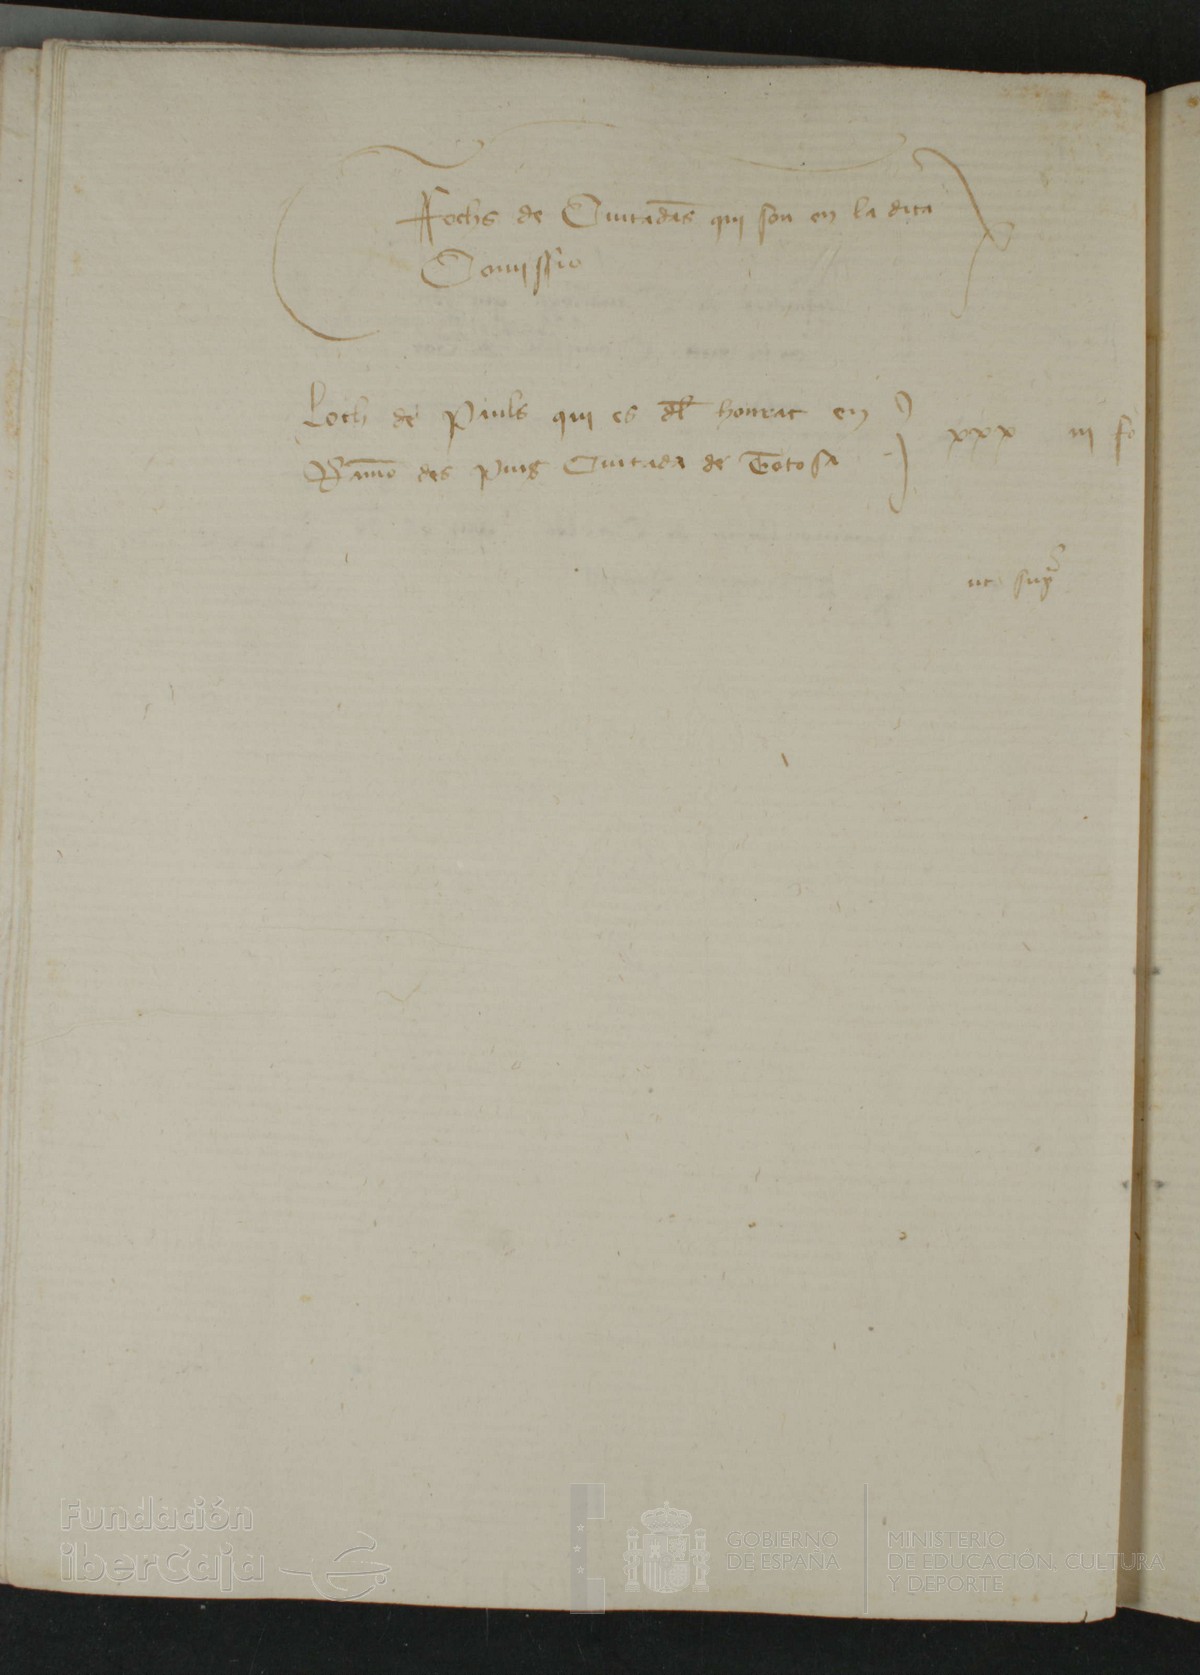 Ffochs de Ciutadãs qui son en la dita
Comissio
Loch de Pauls qui es dl honrat en
Ramõ des puig Ciutada de Tortosa
xxx iii fo
ut sup
Fundación
iberCaja
GOBIERNO
DE ESPAÑA
MINISTERIO
DE EDUCACIÓN, CULTURA
Y DEPORTE